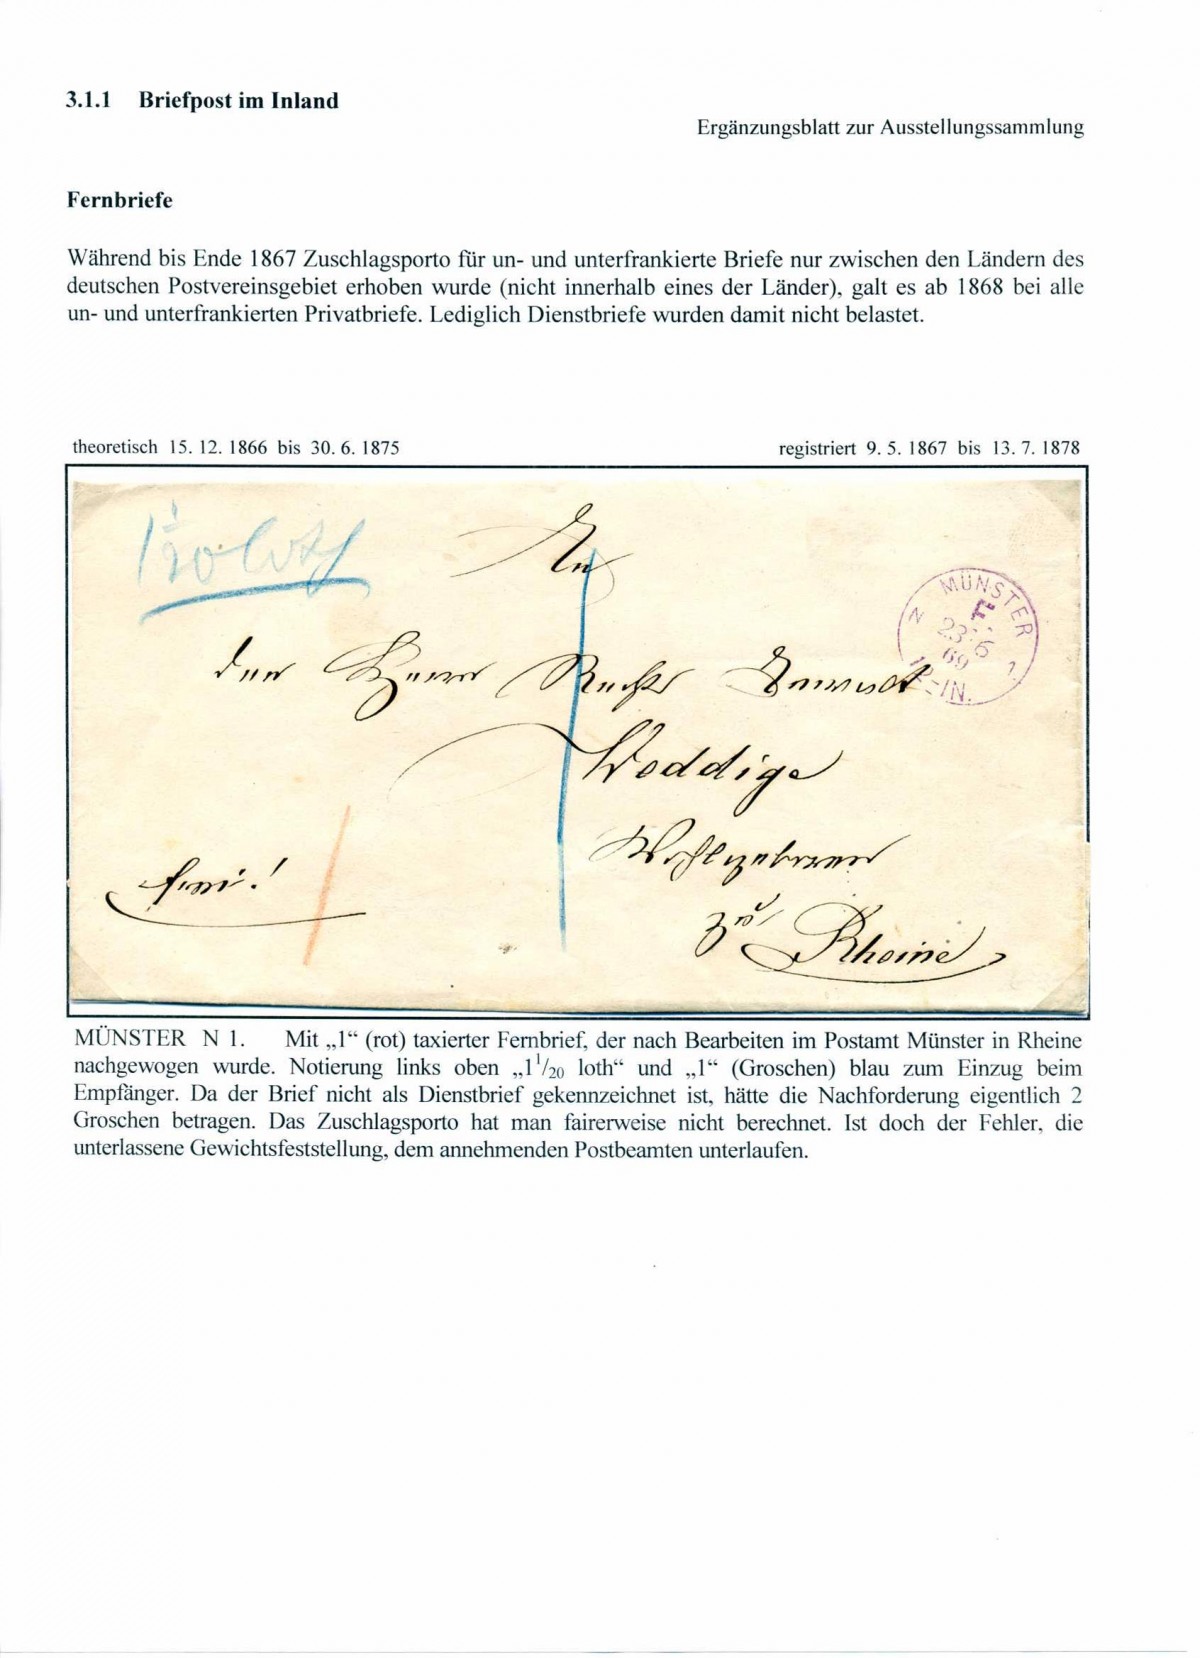 3.1.1 Briefpost im Inland
Ergänzungsblatt zur Ausstellungssammlung
Fernbriefe
Während bis Ende 1867 Zuschlagsporto für un- und unterfrankierte Briefe nur zwischen den Ländern des
deutschen Postvereinsgebiet erhoben wurde (nicht innerhalb eines der Länder), galt es ab 1868 bei alle
un- und unterfrankierten Privatbriefe. Lediglich Dienstbriefe wurden damit nicht belastet.
theoretisch 15. 12. 1866 bis 30. 6. 1875
registriert 9. 5. 1867 bis 13. 7. 1878
1 1/20 loth
An
MÜNSTER
N 1.
F.
23 6
69
den Herrn Rechts Anwalt
Woddige
Wohlgeboren
frei!
zu Rheine
MÜNSTER N 1. Mit „1“ (rot) taxierter Fernbrief, der nach Bearbeiten im Postamt Münster in Rheine
nachgewogen wurde. Notierung links oben „1 1/20 loth“ und „1“ (Groschen) blau zum Einzug beim
Empfänger. Da der Brief nicht als Dienstbrief gekennzeichnet ist, hätte die Nachforderung eigentlich 2
Groschen betragen. Das Zuschlagsporto hat man fairerweise nicht berechnet. Ist doch der Fehler, die
unterlassene Gewichtsfeststellung, dem annehmenden Postbeamten unterlaufen.